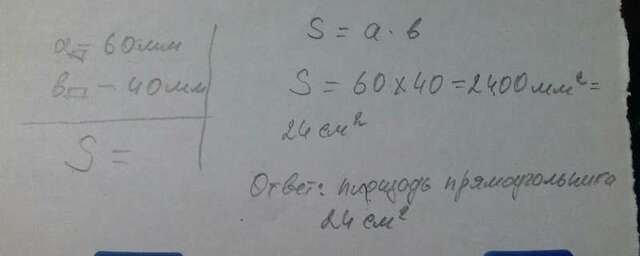 a▭ = 60 мм
в▭ – 40 мм
S =
S = a · в
S = 60 × 40 = 2400 мм² =
24 см²
Ответ: площадь прямоугольника
24 см²